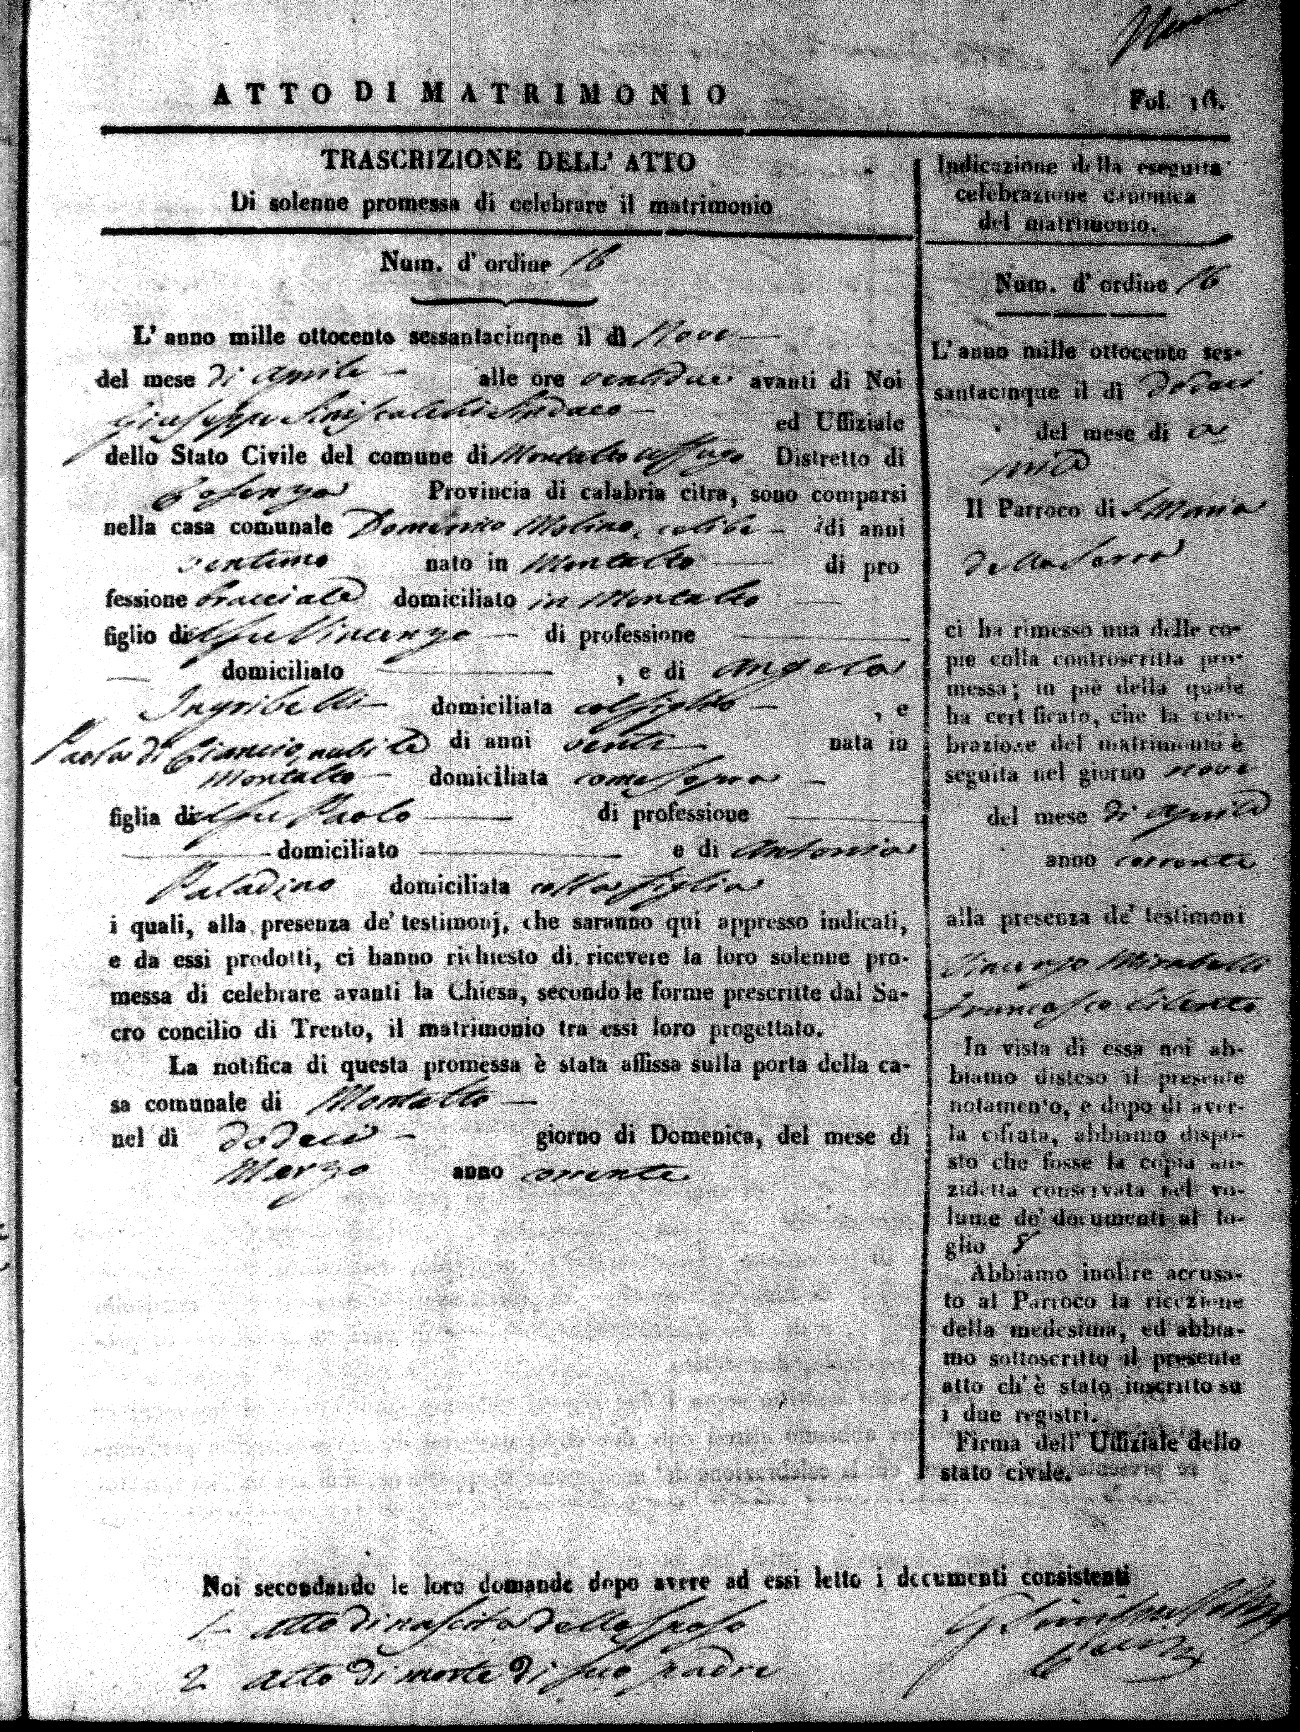 ATTO DI MATRIMONIO
Fol. 16.
TRASCRIZIONE DELL' ATTO
Di solenne promessa di celebrare il matrimonio
Num. d' ordine 16
L' anno mille ottocento sessantacinqne il dì Nove
del mese di Aprile alle ore ventidue avanti di Noi
Giuseppe Siniscalchi Sindaco ed Uffiziale
dello Stato Civile del comune di Montalto Uffugo Distretto di
Cosenza Provincia di calabria citra, sono comparsi
nella casa comunale Domenico Molino, celibe di anni
ventuno nato in Montalto di pro
fessione bracciale domiciliato in Montalto
figlio di Vincenzo di professione
domiciliato , e di Angela
Ingribelli domiciliata col figlio , e
Paola di Ciancio, nubile di anni venti nata in
Montalto domiciliata come sopra
figlia di Paolo di professione
domiciliato e di Antonia
Paladino domiciliata colla figlia
i quali, alla presenza de' testimonj, che saranno qui appresso indicati,
e da essi prodotti, ci hanno richiesto di ricevere la loro solenne pro-
messa di celebrare avanti la Chiesa, secondo le forme prescritte dal Sa-
cro concilio di Trento, il matrimonio tra essi loro progettato.
La notifica di questa promessa è stata affissa sulla porta della ca-
sa comunale di Montalto
nel dì dodeci giorno di Domenica, del mese di
Marzo anno corrente
Indicazione della eseguita
celebrazione canonica
del matrimonio.
Num. d' ordine 16
L' anno mille ottocento ses-
santacinque il dì dodeci
del mese di A
prile
Il Parroco di S. Maria
della Serra
ci ha rimesso una delle co-
pie colla controscritta pro-
messa; in piè della quale
ha certificato, che la cele-
brazione del matrimonio è
seguita nel giorno nove
del mese di Aprile
anno corrente
alla presenza de' testimoni
Vincenzo Mirabelli
Francesco Cilento
In vista di essa noi ab-
biamo disteso il presente
notamento, e dopo di aver-
la cifrata, abbiamo dispo-
sto che fosse la copia an-
zidetta conservata nel vo-
lume de' documenti al fo-
glio 8
Abbiamo inoltre accusa-
to al Parroco la ricezione
della medesima, ed abbia-
mo sottoscritto il presente
atto ch' è stato inscritto su
i due registri.
Firma dell' Uffiziale dello
stato civile.
Noi secondando le loro domande dopo avere ad essi letto i documenti consistenti
1- Atto di nascita dello sposo
2 Atto di morte di suo padre